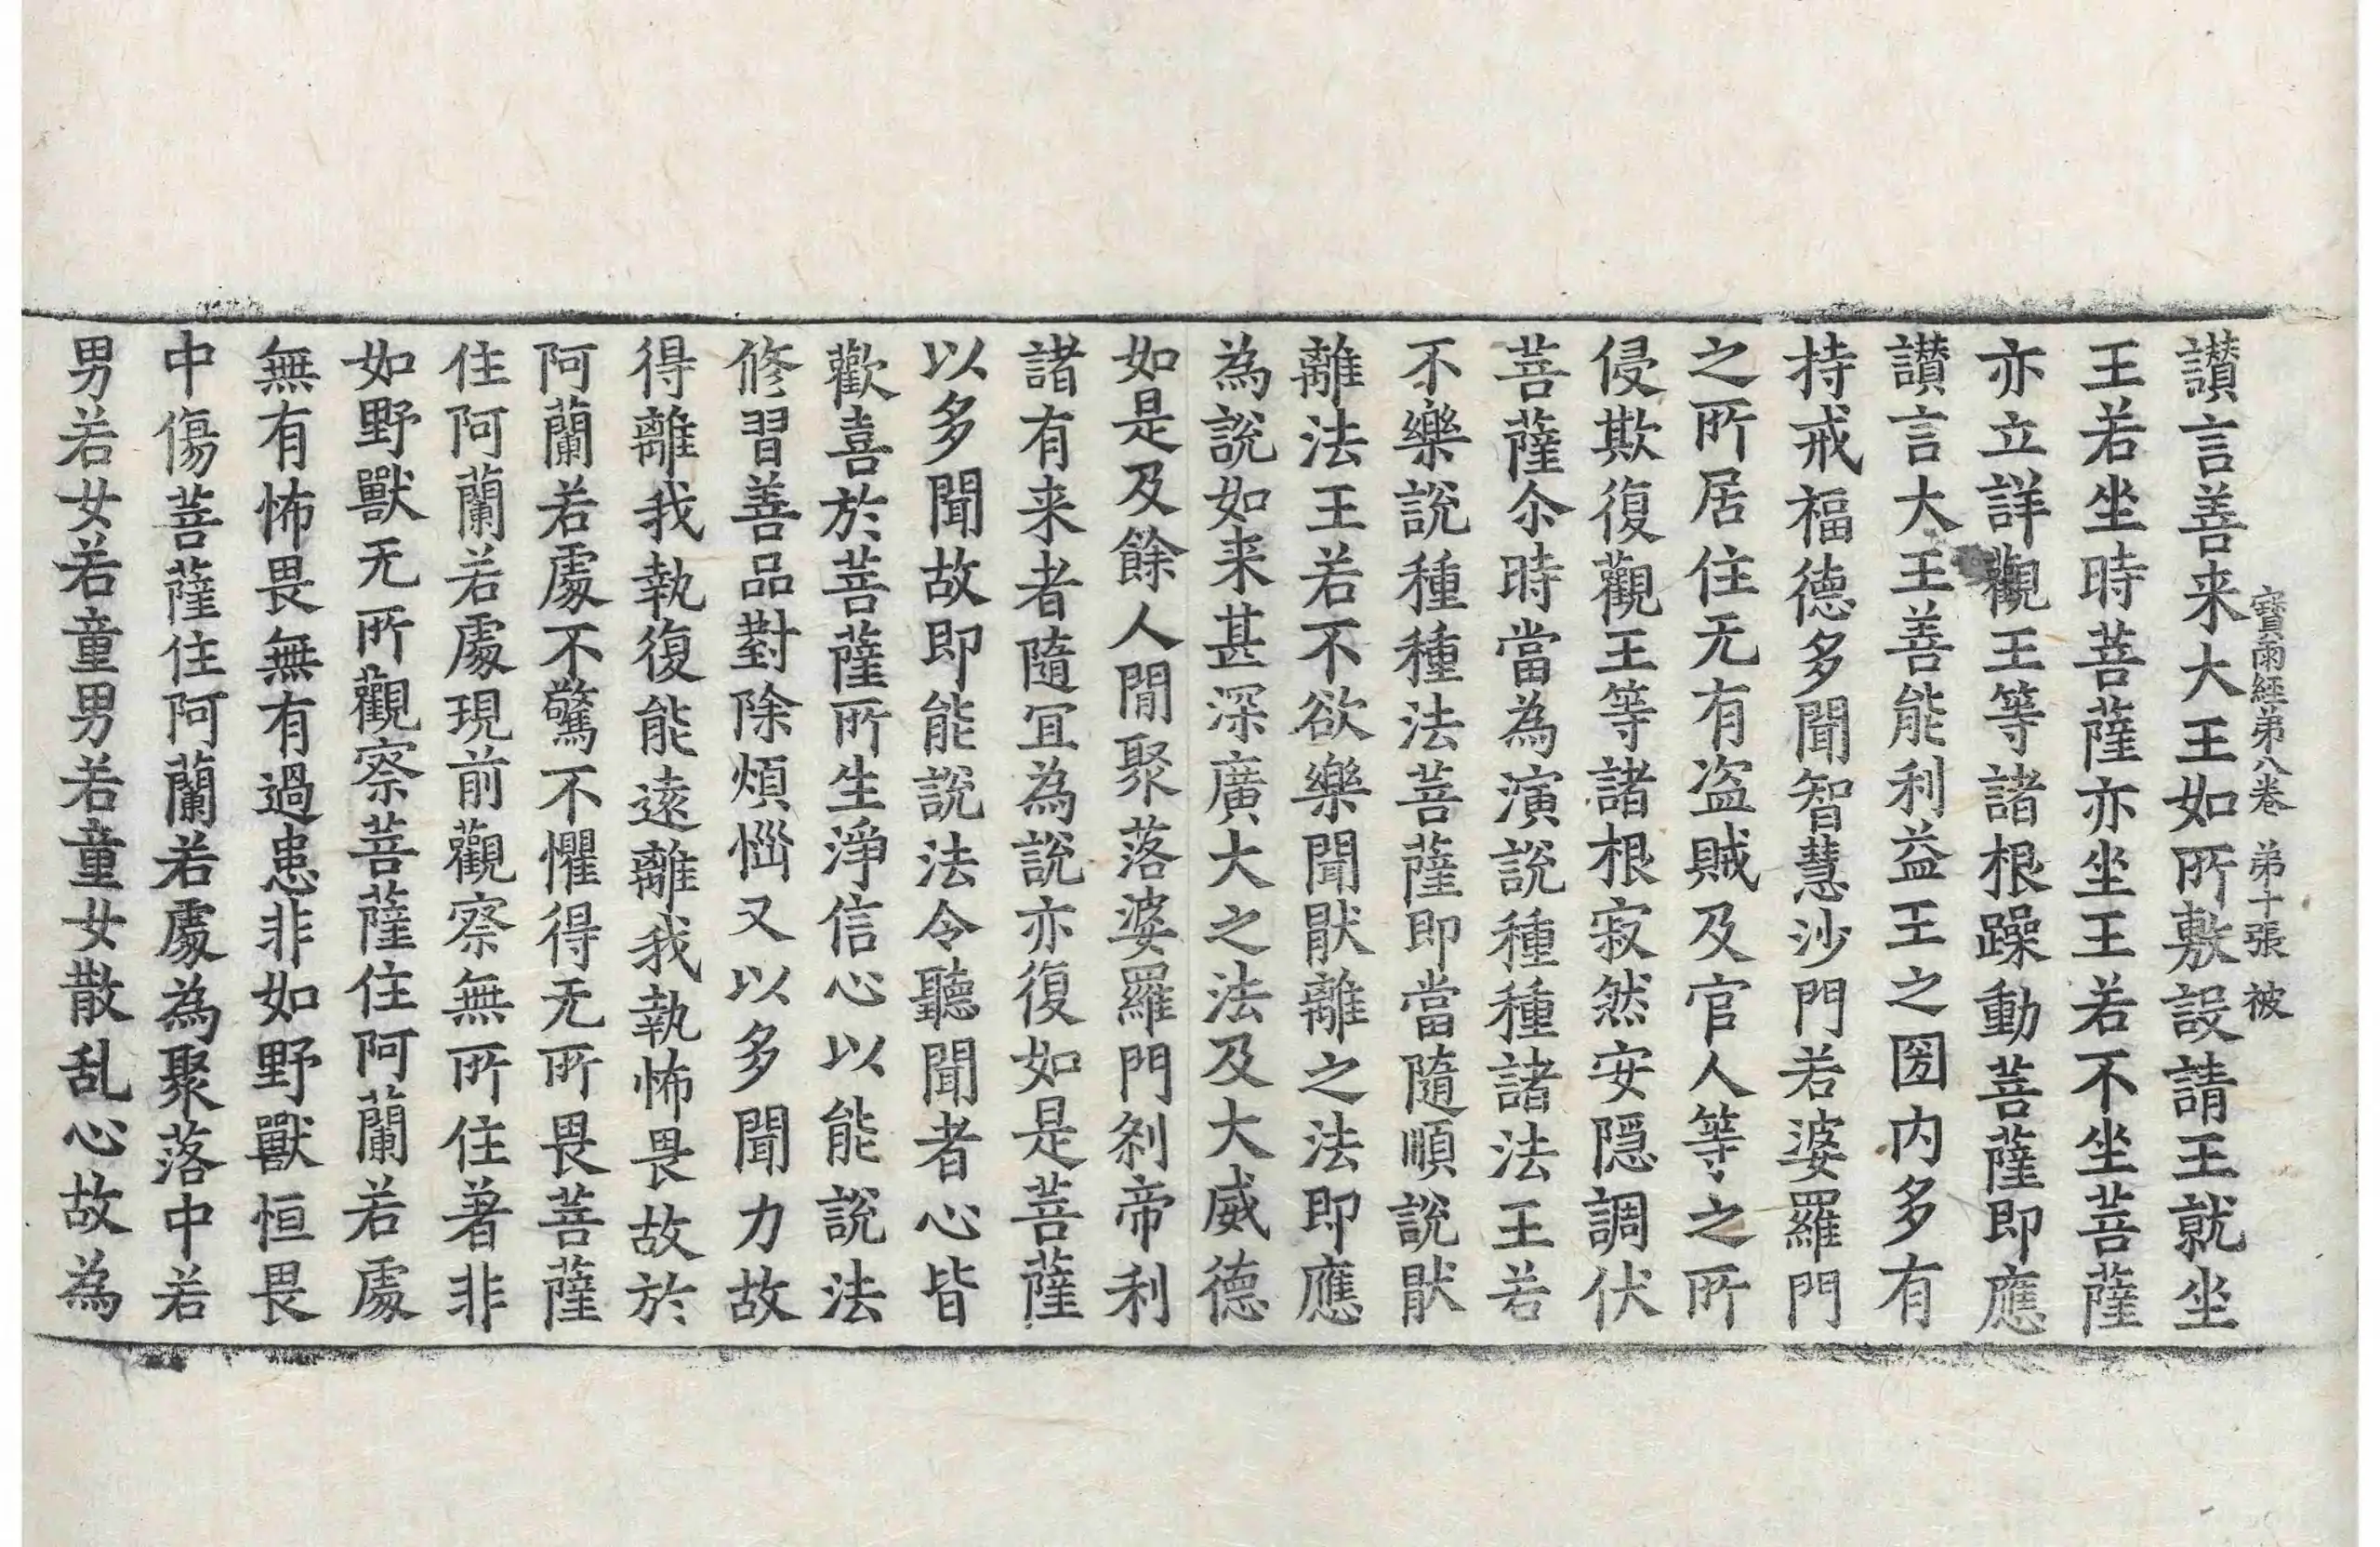 寶雨經第八卷 第十張 被
讃言善来大王如所敷設請王就坐
王若坐時菩薩亦坐王若不坐菩薩
亦立詳觀王等諸根躁動菩薩即應
讃言大王善能利益王之圀内多有
持戒福德多聞智慧沙門若婆羅門
之所居住无有盗賊及官人等之所
侵欺復觀王等諸根寂然安隠調伏
菩薩尒時當為演說種種諸法王若
不樂說種種法菩薩即當隨順說猒
離法王若不欲樂聞猒離之法即應
為說如来甚深廣大之法及大威德
如是及餘人閒聚落婆羅門刹帝利
諸有来者隨冝為說亦復如是菩薩
以多聞故即能說法令聽聞者心皆
歡喜於菩薩所生淨信心以能說法
修習善品對除煩惱又以多聞力故
得離我執復能遠離我執怖畏故於
阿蘭若處不驚不懼得无所畏菩薩
住阿蘭若處現前觀察無所住著非
如野獸无所觀察菩薩住阿蘭若處
無有怖畏無有過患非如野獸恒畏
中傷菩薩住阿蘭若處為聚落中若
男若女若童男若童女散乱心故為